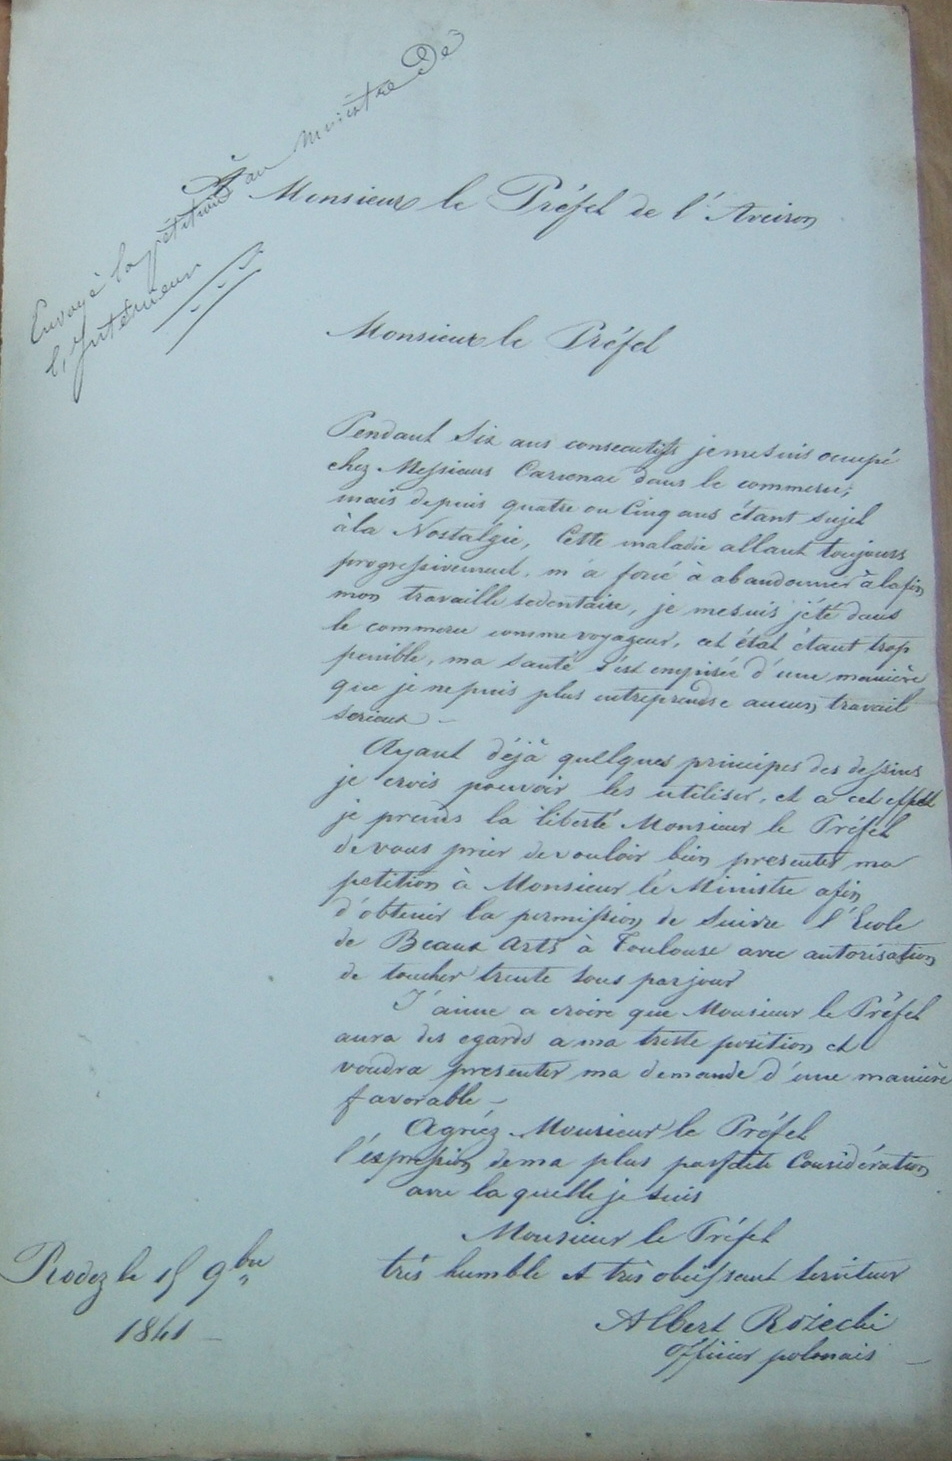 Envoyé la pétition au Ministre de
l'Intérieur
À Monsieur le Préfet de l'Aveiron
Monsieur le Préfet
Pendant Six ans consecutifs je me suis occupé
chez Messieurs dans le commerce;
mais depuis quatre ou Cinq ans étant sujet
à la Nostalgie, Cette maladie allant toujours
progressivement, m'a forcé à abandonner à la fin
mon travaille sedentaire, je me suis jété dans
le commerce comme voyageur, cet état étant trop
penible, ma santé s'est empirée d'une manière
que je ne puis plus entreprendre aucun travail
serieux –
Ayant déjà quelques principes des dessins
je crois pouvoir les utiliser, et a cet effet
je prends la liberté Monsieur le Préfet
de vous prier de vouloir bien presenter ma
petition à Monsieur le Ministre afin
d'obtenir la permission de Suivre l'École
de Beaux Arts à Toulouse avec autorisation
de toucher trente Sous par jour
J'aime a croire que Monsieur le Préfet
aura des egards a ma triste position et
voudra presenter ma demande d'une manière
favorable –
Agriéz Monsieur le Préfet
l'éxpression de ma plus parfaite Considération
avec la quelle je suis
Monsieur le Préfet
très humble et très obeissant Serviteur
Rodez le 15 9bre
1841 –
Albert
Officier polonais –